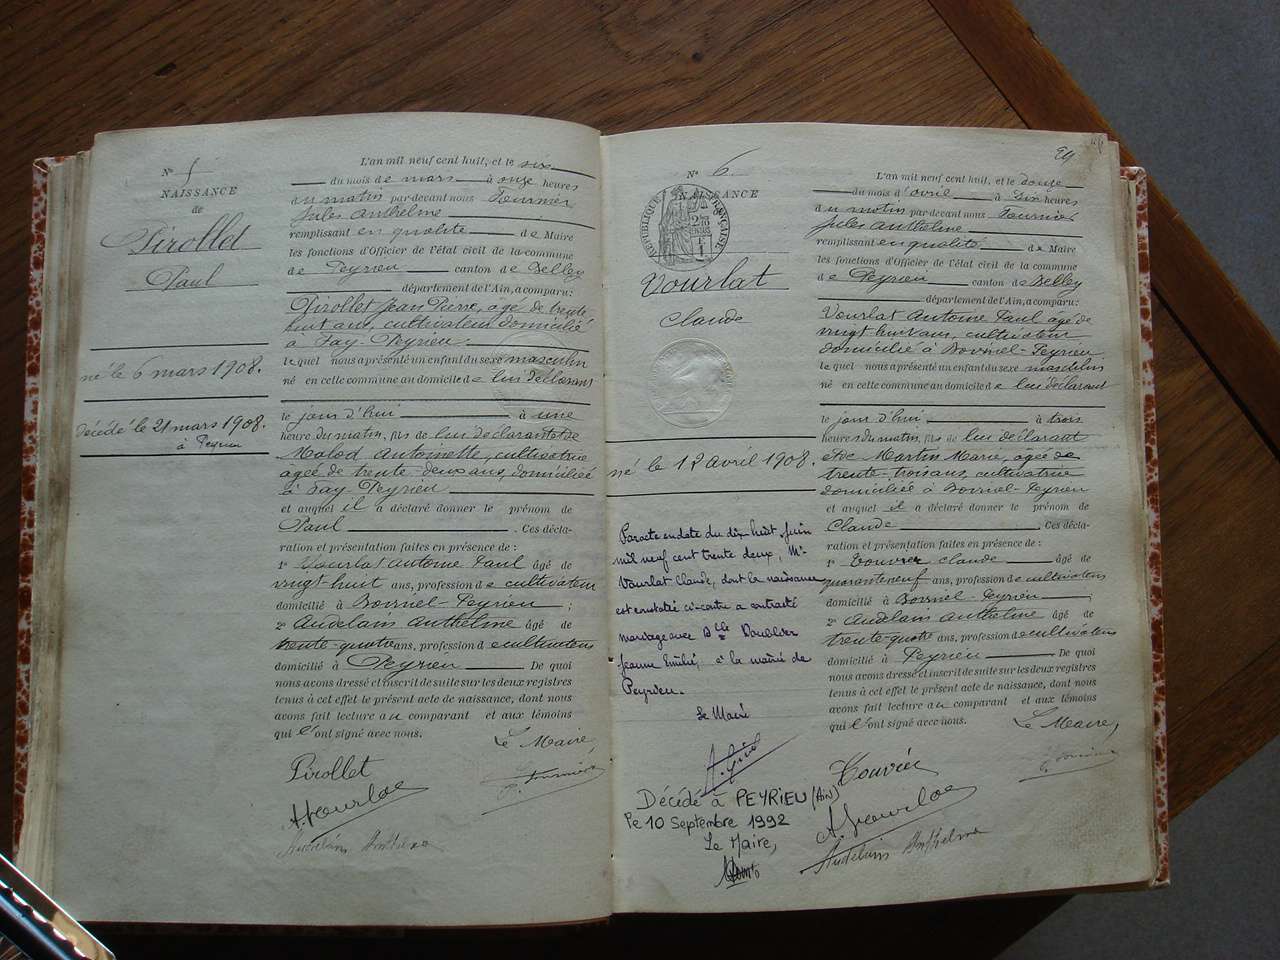 N° 5
NAISSANCE
de
Pirollet
Paul
né le 6 mars 1908.
décédé le 21 mars 1908.
à Peyrieu
L'an mil neuf cent huit, et le six
du mois de mars à onze heures
du matin par-devant nous Fournier
Jules Anthelme
remplissant en qualité de Maire
les fonctions d'Officier de l'état civil de la commune
de Peyrieu canton de Belley
département de l'Ain, a comparu:
Pirollet Jean Pierre, âgé de trente
huit ans, cultivateur domicilié
à Fay-Peyrieu
lequel nous a présenté un enfant du sexe masculin
né en cette commune au domicile de lui déclarant
le jour d'hui à une
heure du matin, fils de lui déclarant et de
Molod Antoinette, cultivatrice
âgée de trente-deux ans, domiciliée
à Fay Peyrieu
et auquel il a déclaré donner le prénom de
Paul. Ces décla-
ration et présentation faites en présence de:
1° Vourlat Antoine Paul âgé de
vingt huit ans, profession de cultivateur
domicilié à Peyrieu;
2° Audelans Anthelme âgé de
trente-quatre ans, profession de cultivateur
domicilié à Peyrieu De quoi
nous avons dressé et inscrit de suite sur les deux registres
tenus à cet effet le présent acte de naissance, dont nous
avons fait lecture au comparant et aux témoins
qui l'ont signé avec nous. Le Maire,
Pirollet
A. Vourlat
Audelans Anthelme
24
N° 6.
NAISSANCE
RÉPUBLIQUE FRANÇAISE
Vourlat
Claude
né le 12 avril 1908.
Par acte en date du dix huit juin
mil neuf cent trente deux, Mr
Vourlat Claude, dont la naissance
est constatée ci-contre a contracté
mariage avec Dlle
Jeanne Emilie, à la mairie de
Peyrieu.
Le Maire
Décédé à PEYRIEU (Ain)
le 10 Septembre 1992
Le Maire,
L'an mil neuf cent huit, et le douze
du mois d'avril à dix heures
du matin par-devant nous Fournier
Jules Anthelme
remplissant en qualité de Maire
les fonctions d'Officier de l'état civil de la commune
de Peyrieu canton de Belley
département de l'Ain, a comparu:
Vourlat Antoine Paul âgé de
vingt huit ans, cultivateur
domicilié à Peyrieu
lequel nous a présenté un enfant du sexe masculin
né en cette commune au domicile de lui déclarant
le jour d'hui à trois
heures du matin, fils de lui déclarant
et de Martin Marie, âgée de
trente-trois ans, cultivatrice
domiciliée à Peyrieu
et auquel il a déclaré donner le prénom de
Claude. Ces décla-
ration et présentation faites en présence de:
1° Touvier Claude âgé de
quarante neuf ans, profession de cultivateur
domicilié à Peyrieu;
2° Audelans Anthelme âgé de
trente-quatre ans, profession de cultivateur
domicilié à Peyrieu. De quoi
nous avons dressé et inscrit de suite sur les deux registres
tenus à cet effet le présent acte de naissance, dont nous
avons fait lecture au comparant et aux témoins
qui l'ont signé avec nous. Le Maire,
Touvier
A. Vourlat
Audelans Anthelme